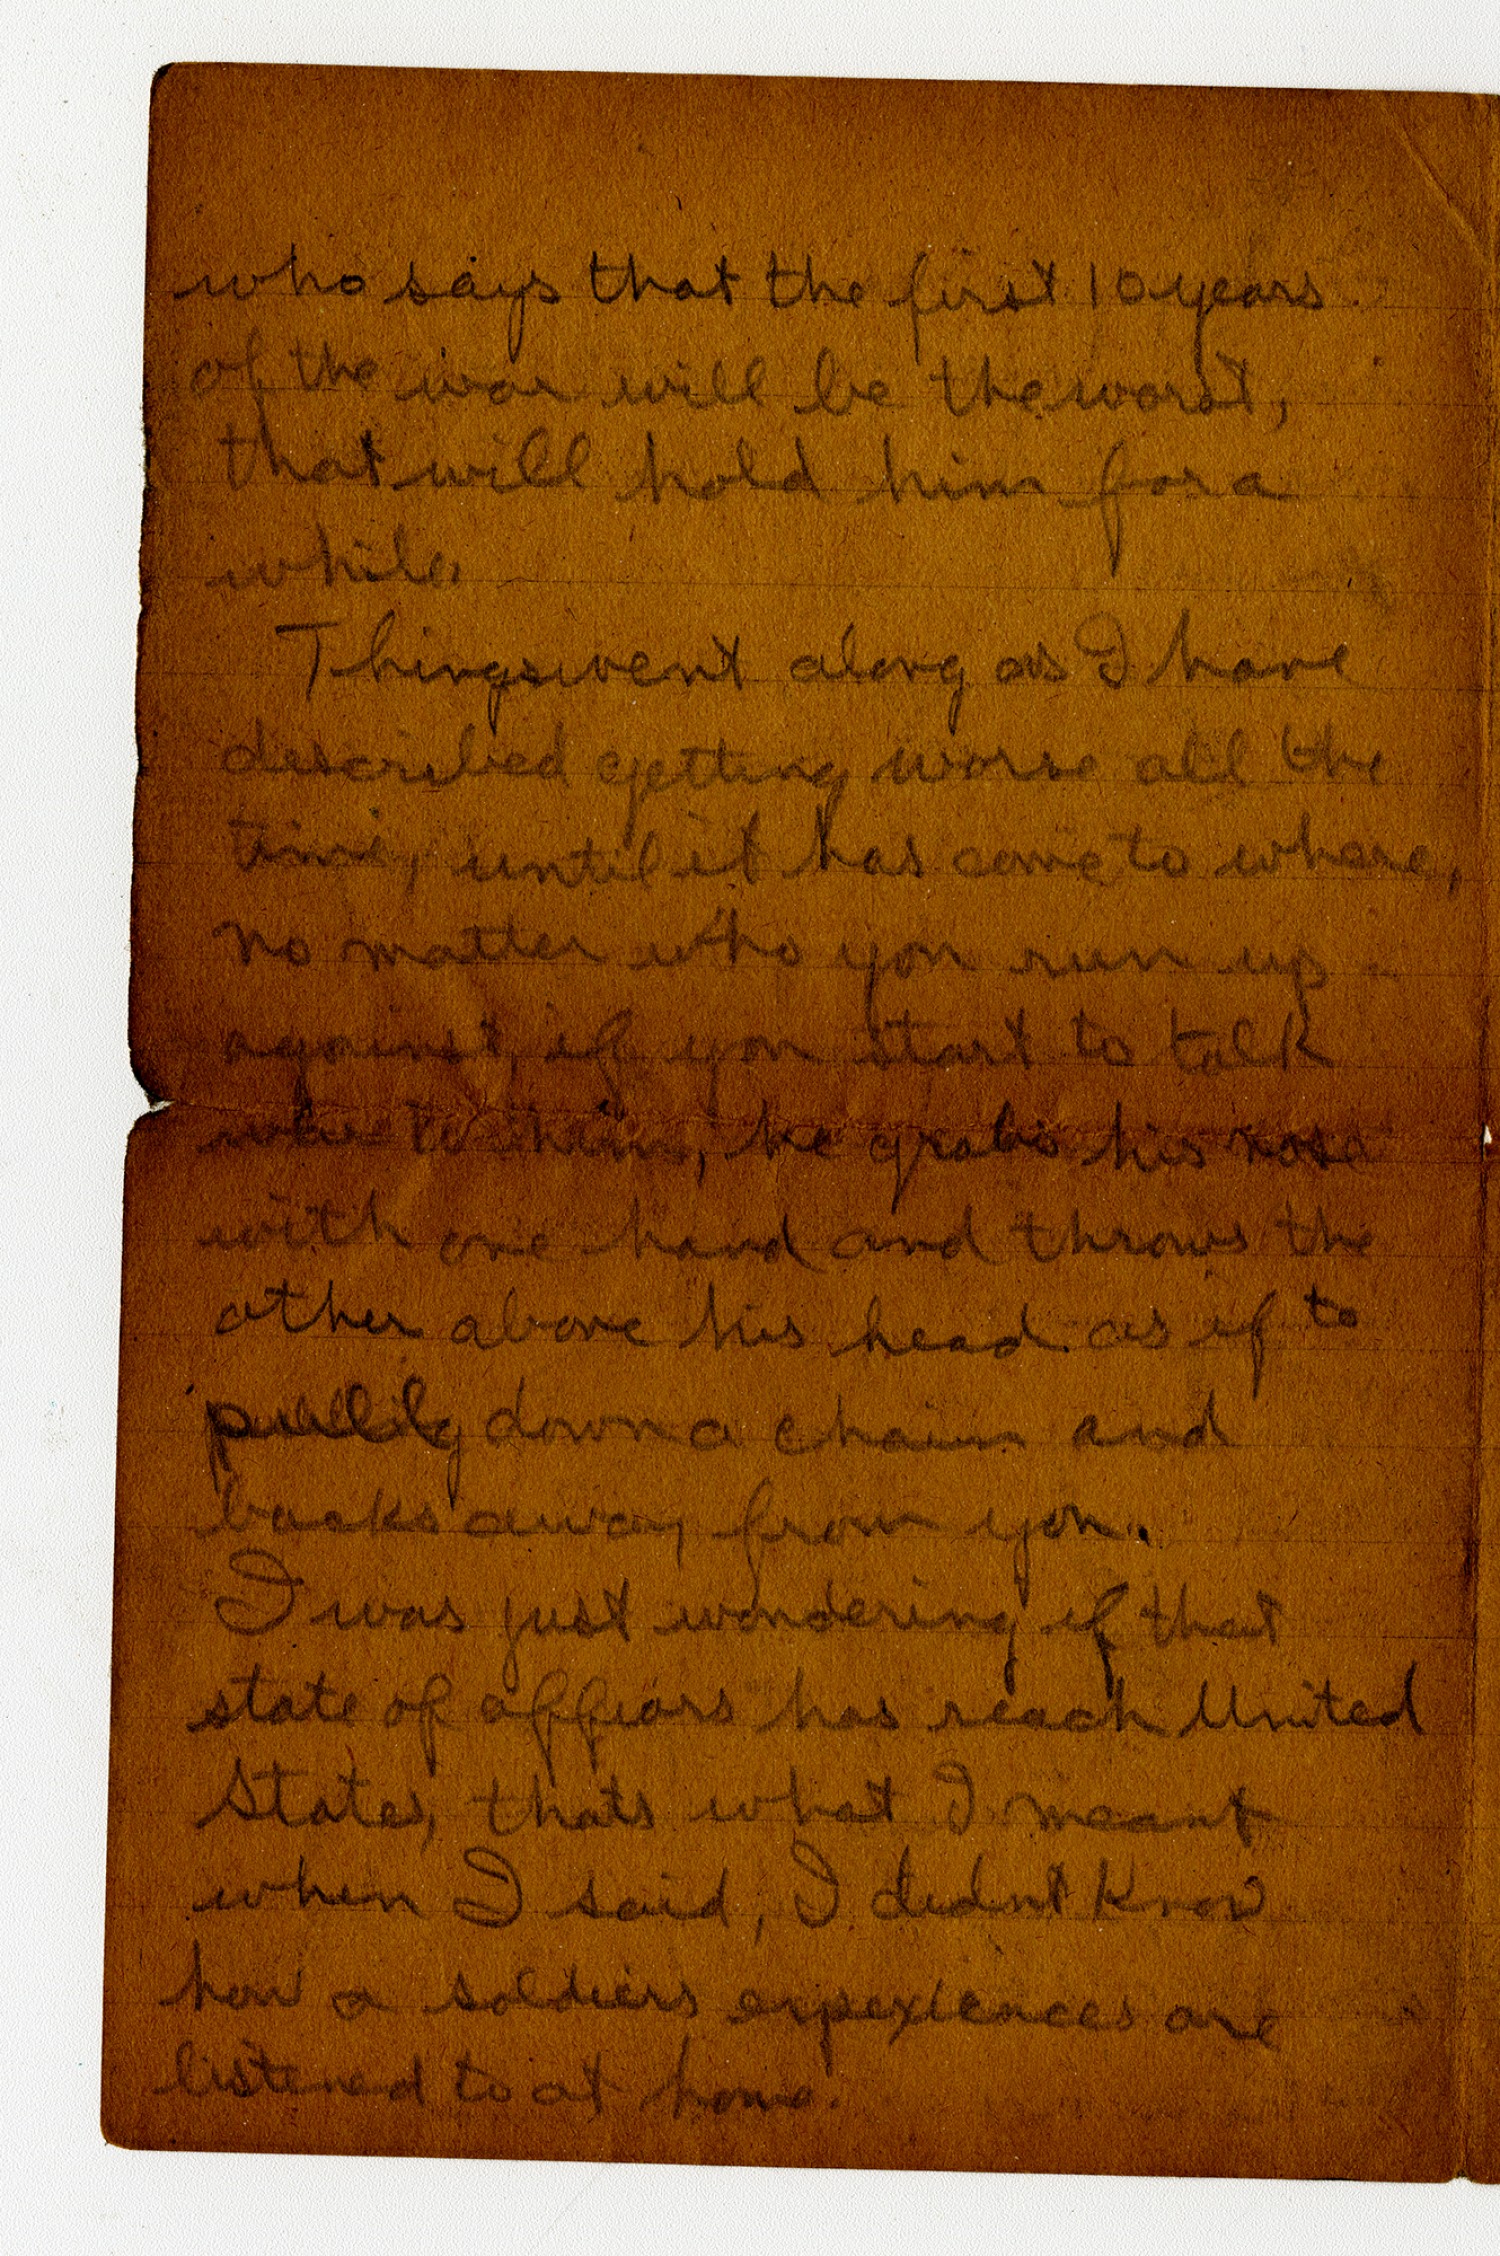 who says that the first 10 years
of the war will be the worst,
that will hold him for a
while.
Things went along as I have
described getting worse all the
time, until it has come to where,
no matter who you run up
against, if you start to talk
war to him, he grabs his nose
with one hand and throws the
other above his head as if to
pullig down a chain and
backs away from you.
I was just wondering if that
state of affiars has reach United
States, thats what I meant
when I said, I didnt Know
how a soldiers experiences are
listened to at home.